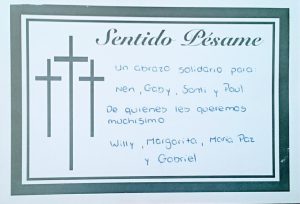 Sentido Pésame
Un abrazo solidario para:
Nen, Gaby, Santi y Paul
De quienes les queremos
muchísimo
Willy, Margarita, María Paz
y Gabriel